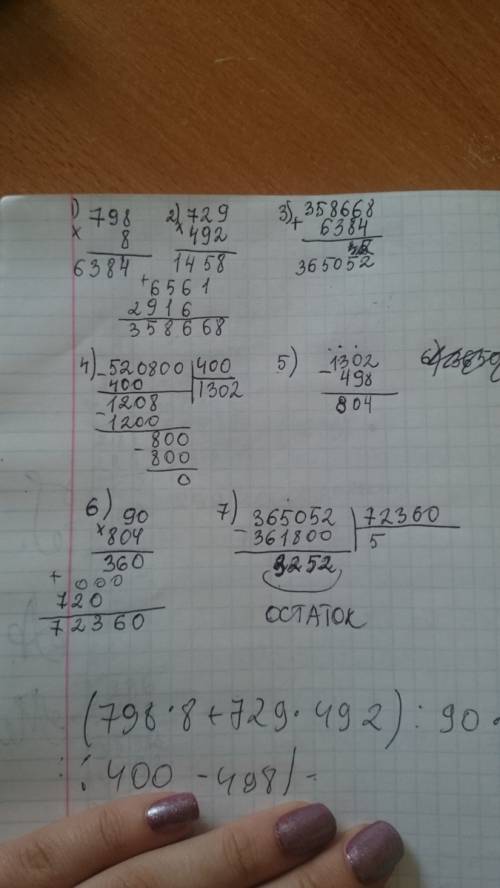 1) 798
× 8
6384
2) 729
× 492
1458
+ 6561
2916
358668
3) 358668
+ 6384
365052
4) - 520800 | 400
400 | 1302
- 1208
- 1200
- 800
800
0
5) - 1302
498
804
6) 90
× 804
360
+ 000
720
72360
7) - 365052 | 72360
361800 | 5
3252
ОСТАТОК
(798·8+729·492):90
: 400 - 498) -